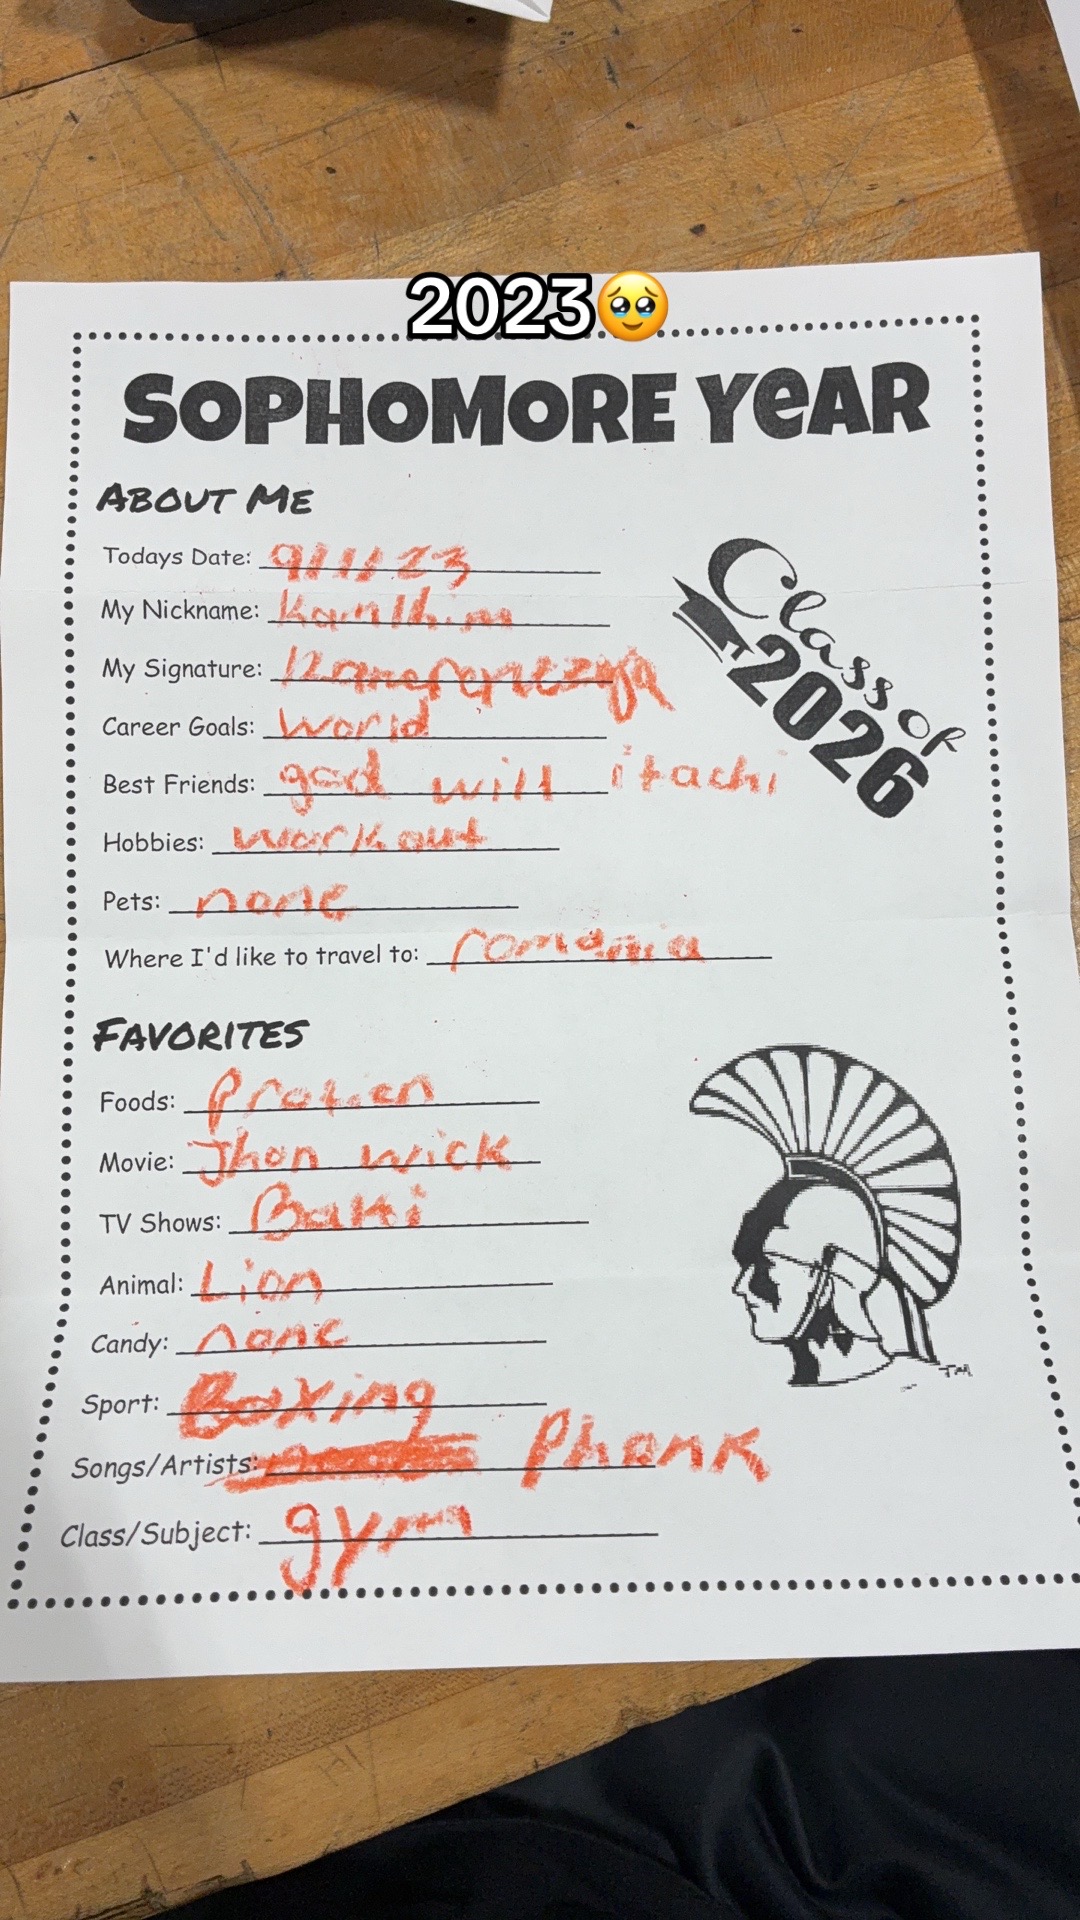 2023🥹
SOPHOMORE YEAR
ABOUT ME
Todays Date: 9/1/23
My Nickname:
My Signature:
Career Goals: World
Best Friends: god will itachi
Hobbies: workout
Pets: none
Where I'd like to travel to: romania
Class of
2026
FAVORITES
Foods: Protien
Movie: Jhon wick
TV Shows: Baki
Animal: Lion
Candy: none
Sport: Boxing
Songs/Artists: Phonk
Class/Subject: gym